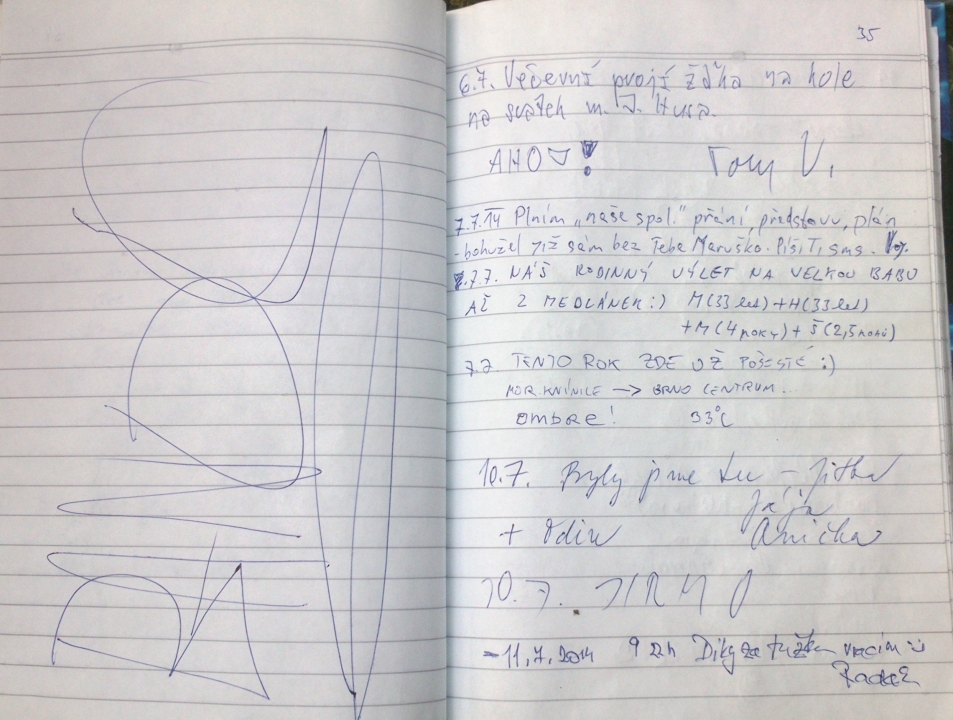 35
6.7. Večerní projížďka na kole
na svátek m. J. Husa.
AHOJ! Tom V.
7.7.14 Plním „naše spol." přání, představu, plán
- bohužel již sám bez Tebe Maruško. Píši Ti sms.
7.7. NÁŠ RODINNÝ VÝLET NA VELKOU BABU
AŽ Z MEDLÁNEK :) M(33 let) + H(33 let)
+ M(4 roky) + Š(2,5 roku)
7.7. TENTO ROK ZDE UŽ POŠESTÉ :)
MOR. KNÍNICE → BRNO CENTRUM...
OMBRE! 33°C
10.7. Byly jsme tu - Jitka
Jája
+ Odin Anička
10.7. JIRKA
- 11.7.2014 Díky za tužku vracím
Radek